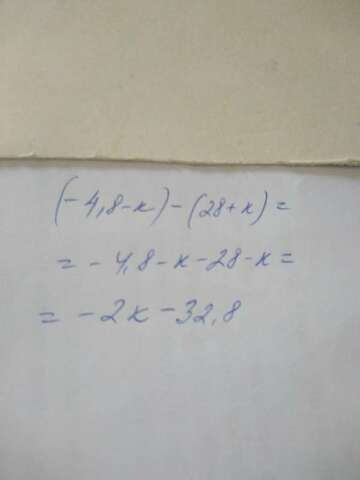 (-4,8-к)-(28+к)=
=-4,8-к-28-к=
=-2к-32,8